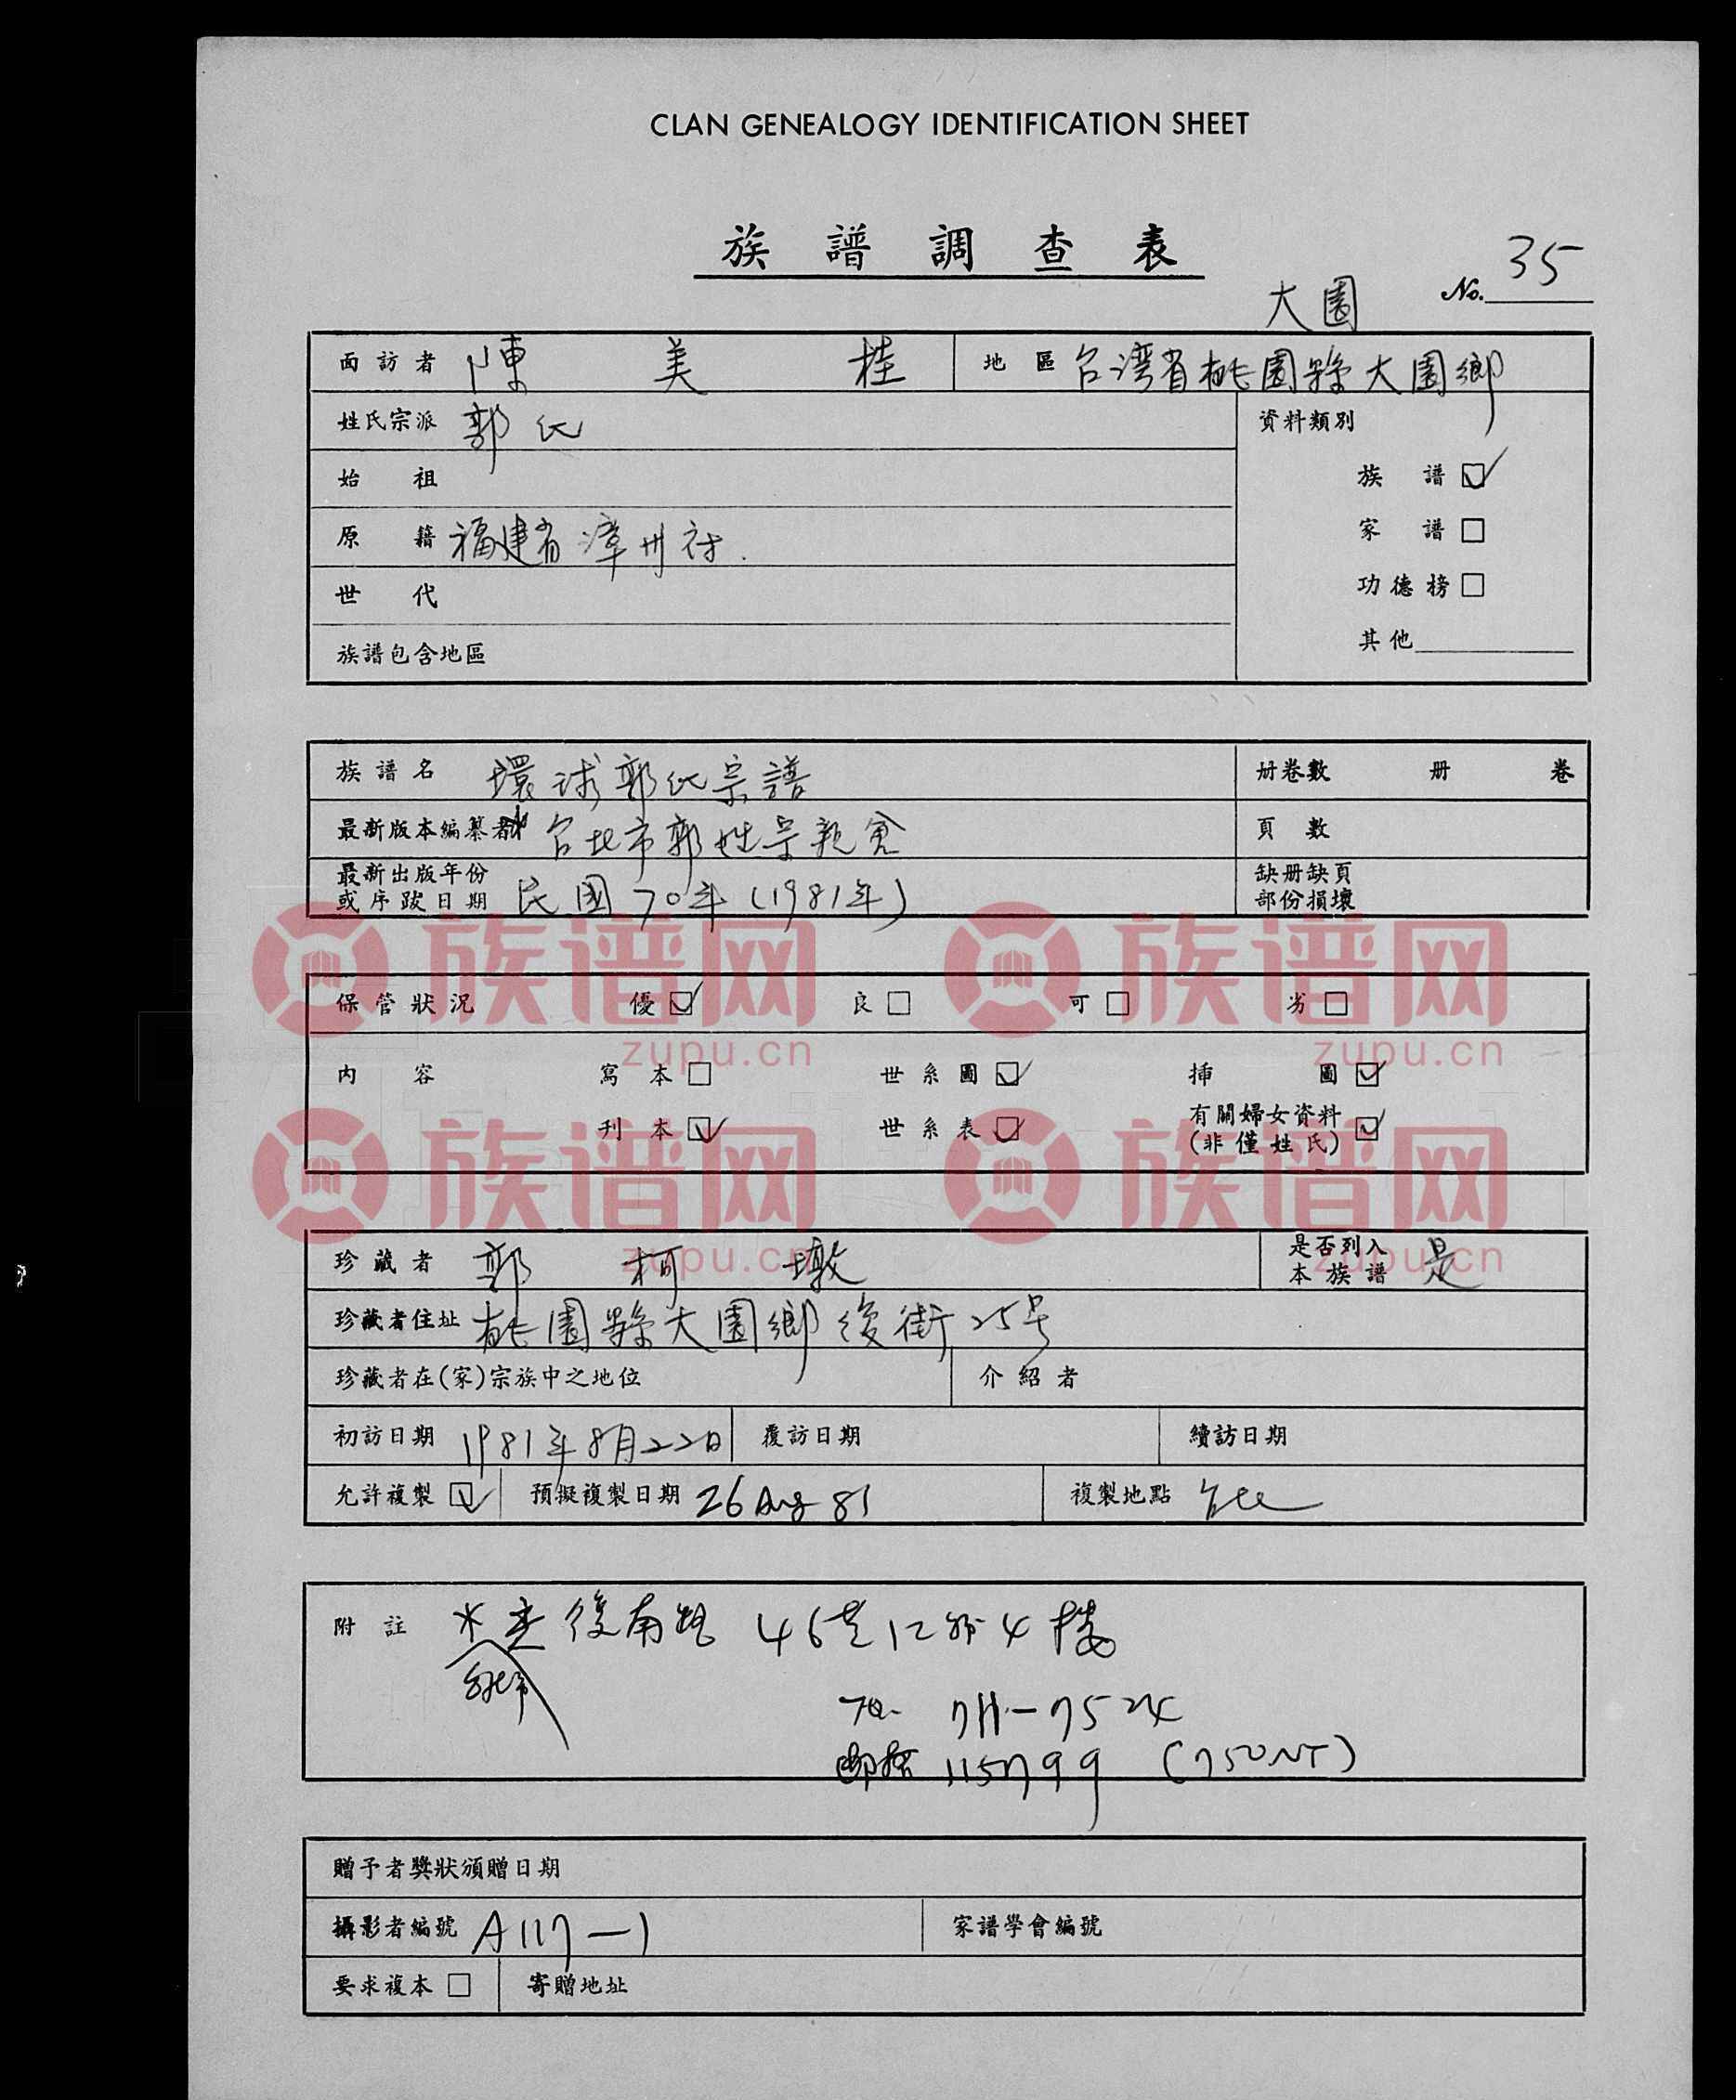 CLAN GENEALOGY IDENTIFICATION SHEET
族譜調查表
大園 No. 35
面訪者 陳美桂 地區 台湾省桃園縣大園鄉
姓氏宗派 郭氏 資料類別
始祖 族譜 ☑
原籍 福建省漳州府. 家譜 □
世代 功德榜 □
族譜包含地區 其他
族譜名 環球郭氏宗譜 冊卷數 冊 卷
最新版本編纂者 台北市郭姓宗親會 頁數
最新出版年份 缺册缺頁
或序跋日期 民國70年(1981年) 部份損壞
保管狀況 優 ☑ 良 □ 可 □ 劣 □
內容 寫本 □ 世系圖 ☑ 插圖 ☑
刊本 ☑ 世系表 ☑ 有關婦女資料 ☑
(非僅姓氏)
珍藏者 郭柯墩 是否列入
本族譜 是
珍藏者住址 桃園縣大園鄉後街25号
珍藏者在(家)宗族中之地位 介紹者
初訪日期 1981年8月22日 覆訪日期 續訪日期
允許複製 ☑ 預擬複製日期 26 Aug 81 複製地點
附註 後南路 46巷12號4樓
台北市
TEL. 711-7524
郵撥 115799 (750NT)
贈予者獎狀頒贈日期
攝影者編號 A117-1 家譜學會編號
要求複本 □ 寄贈地址
族谱网 族谱网
zupu.cn zupu.cn
族谱网 族谱网
zupu.cn zupu.cn